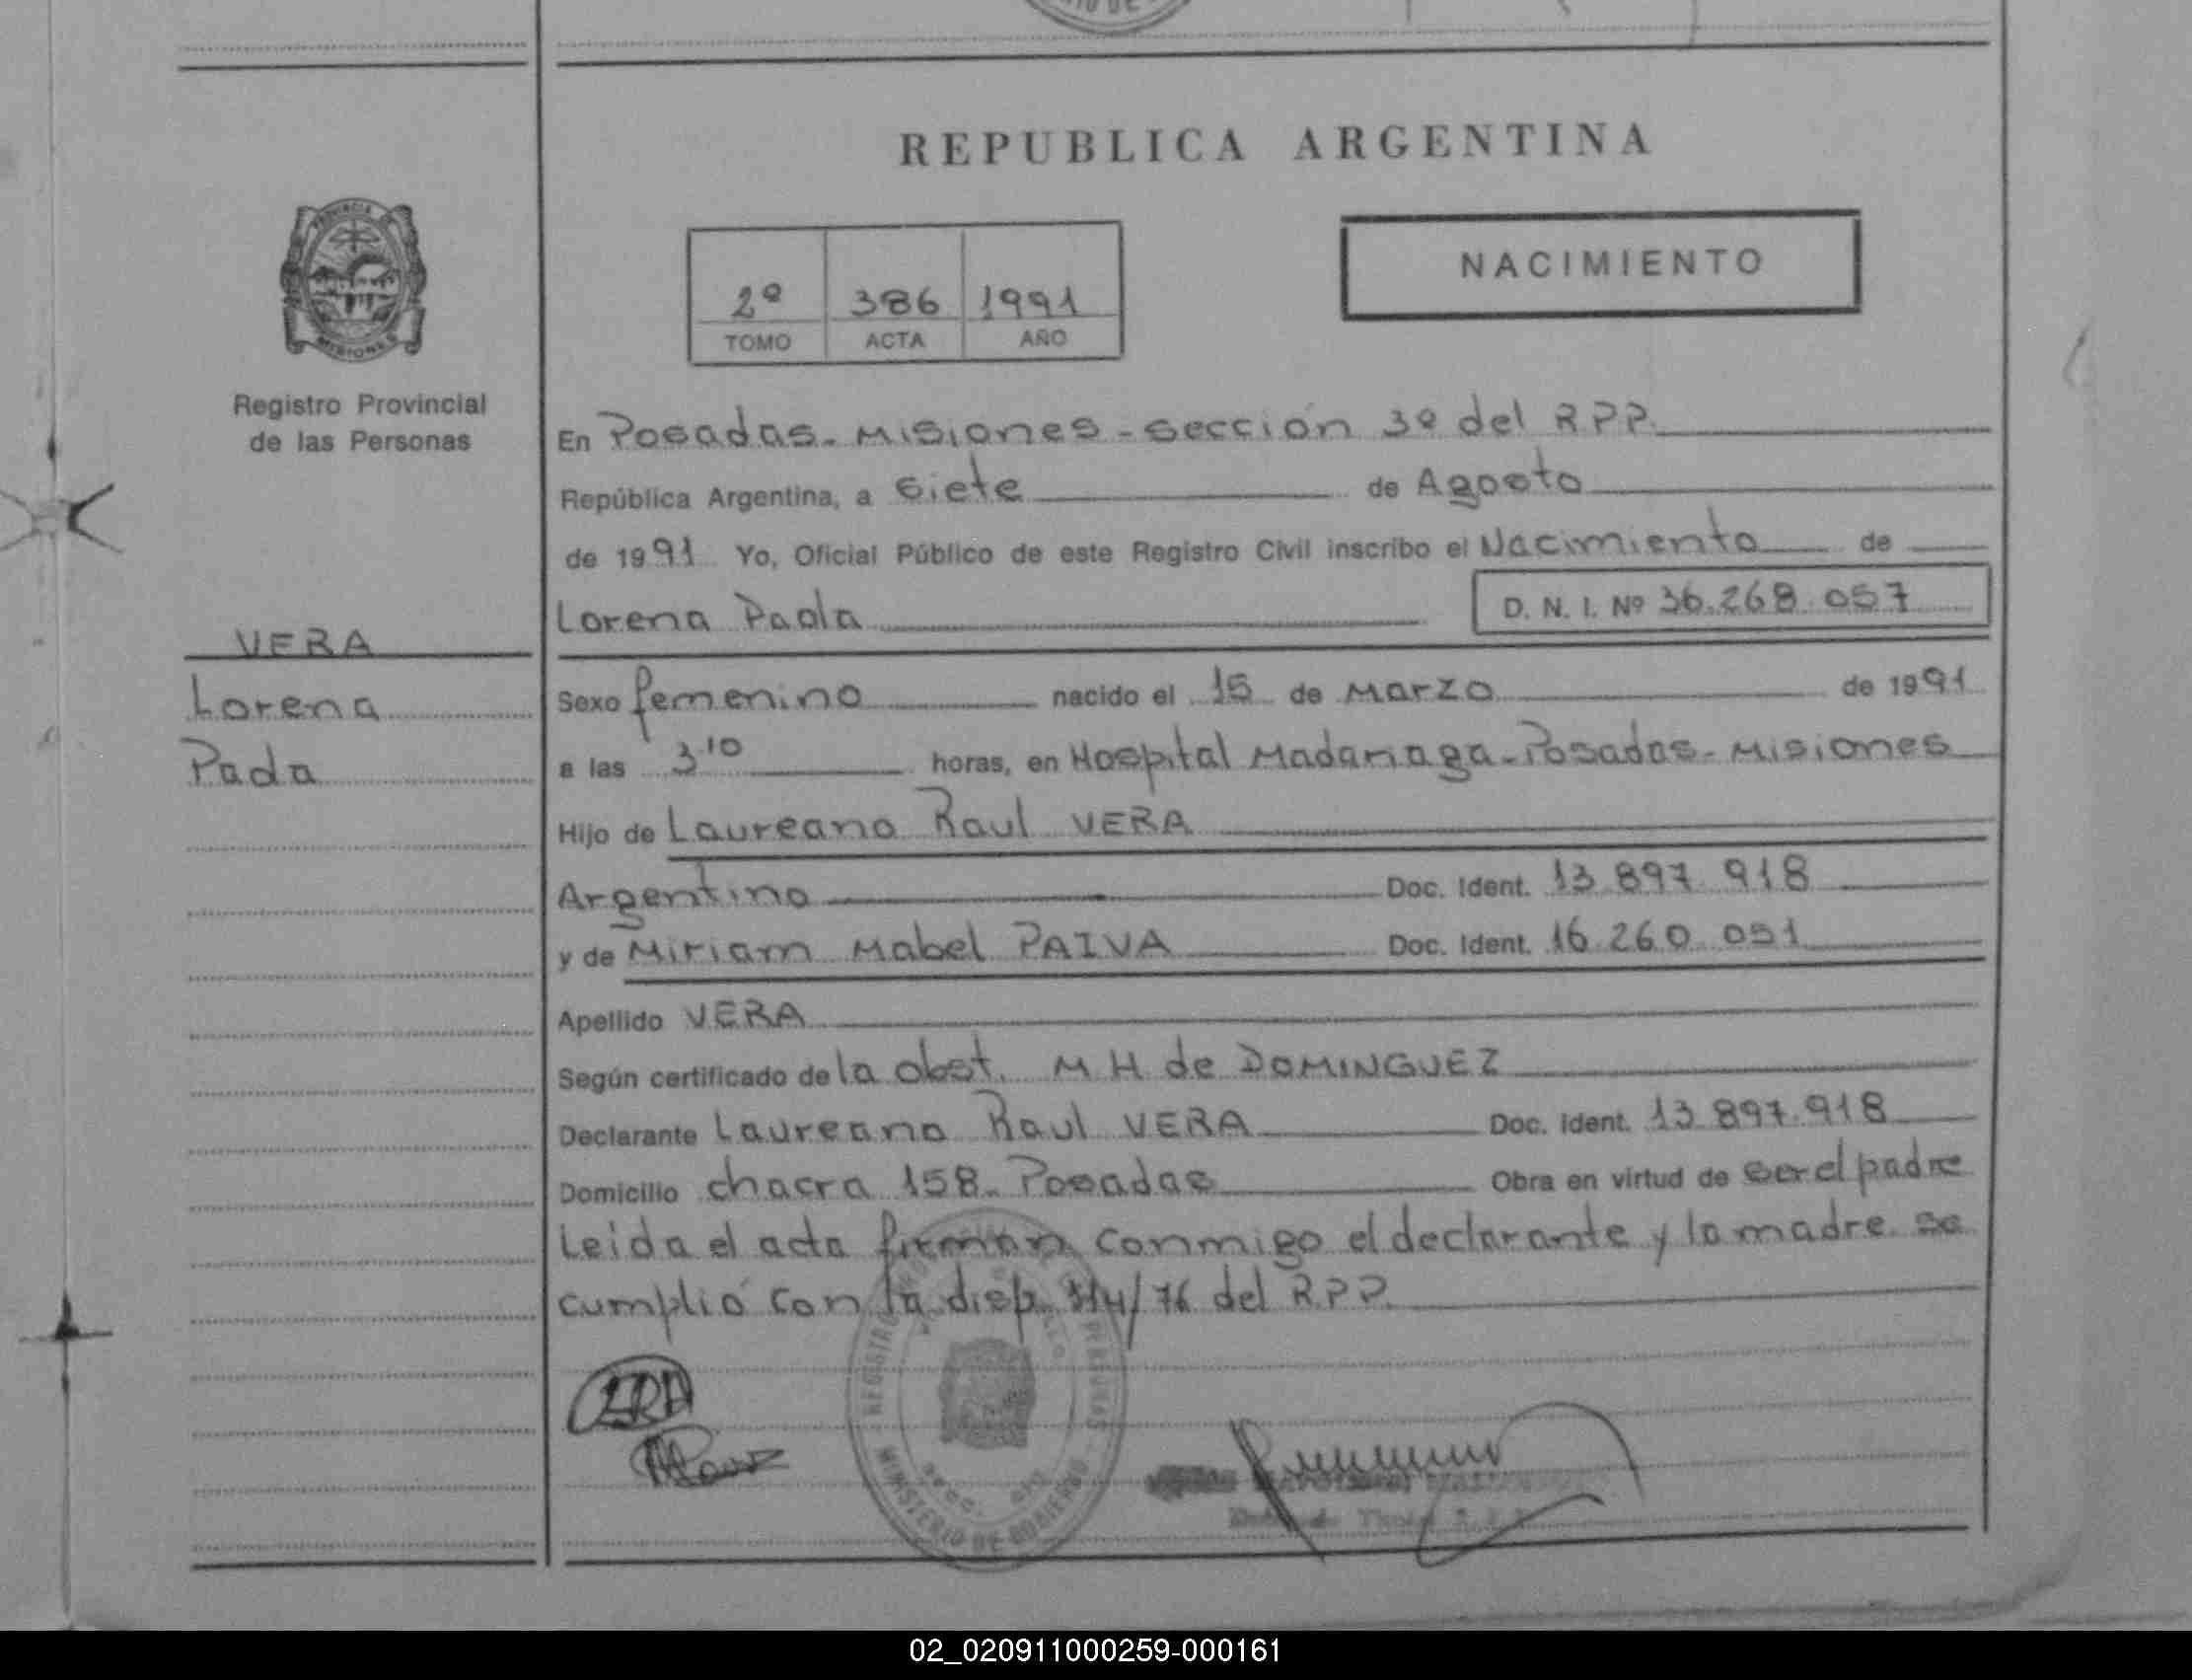 REPUBLICA ARGENTINA
NACIMIENTO
2º 386 1991
TOMO ACTA AÑO
PROVINCIA DE
MISIONES
Registro Provincial
de las Personas
VERA
Lorena
Paola
En Posadas - Misiones - Sección 3º del R.P.P.
República Argentina, a siete de Agosto
de 1991 Yo, Oficial Público de este Registro Civil inscribo el Nacimiento de
Lorena Paola D. N. I. Nº 36.268.057
Sexo femenino nacido el 15 de Marzo de 1991
a las 3 10 horas, en Hospital Madariaga - Posadas - Misiones
Hijo de Laureano Raul VERA
Argentino Doc. Ident. 13 897 918
y de Miriam Mabel PAIVA Doc. Ident. 16 260 051
Apellido VERA
Según certificado de la obst. M H de DOMINGUEZ
Declarante Laureano Raul VERA Doc. Ident. 13 897.918
Domicilio chacra 158 - Posadas Obra en virtud de ser el padre
Leida el acta firman conmigo el declarante y la madre se
cumplió con la disp. /76 del R.P.P.
REGISTRO PERSONAS
MINISTERIO DE GOBIERNO
02_020911000259-000161